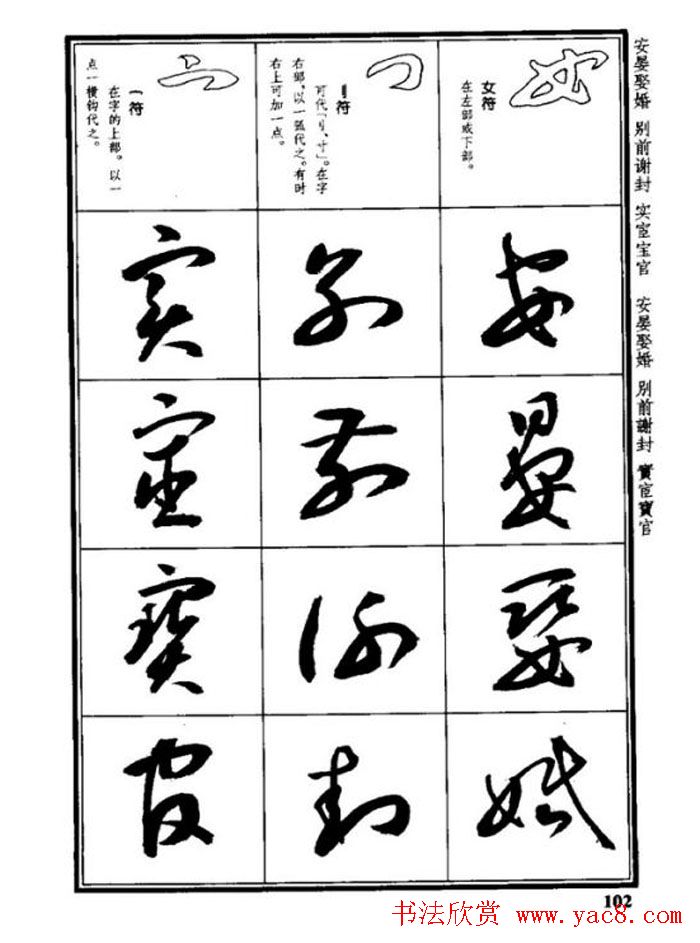 安晏娶婚 别前谢封 实宦宝官 安晏娶婚 别前謝封 實宦寶官
女符
在左部或下部。
安
晏
娶
婚
刂符
可代「刂、寸」。在字
右部。以一弧代之。有时
右上可加一点。
别
前
谢
封
符
在字的上部。以一
点一横钩代之。
实
宦
宝
官
102
书法欣赏 www.yac8.com